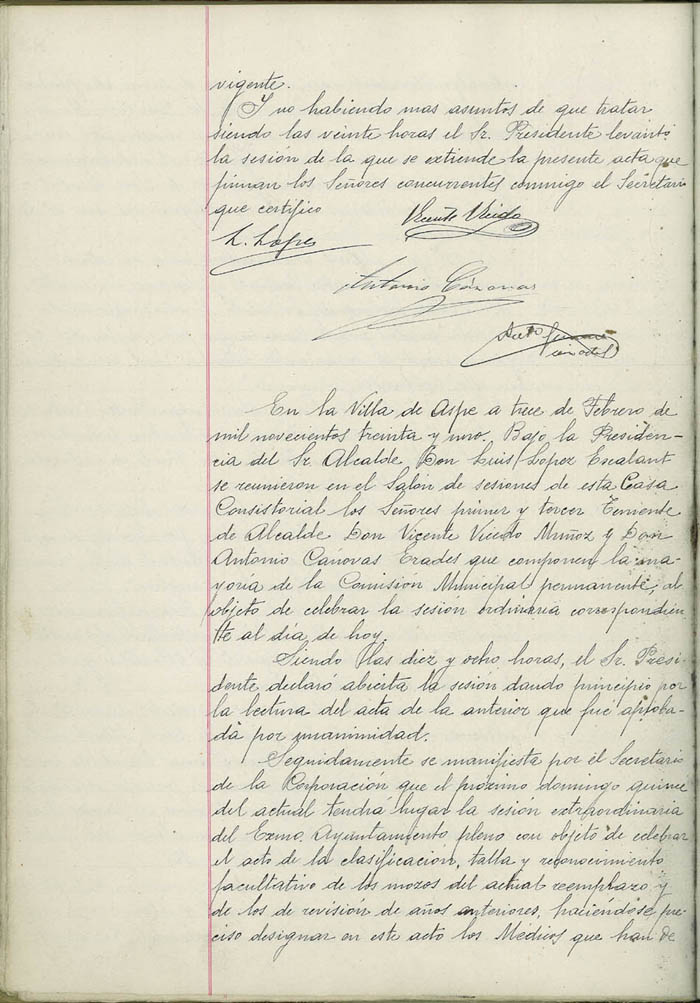 vigente.
Y no habiendo mas asuntos de que tratar
siendo las veinte horas el Sr. Presidente levantó
la sesión de la que se extiende la presente acta que
firman los Señores concurrentes conmigo el Secretario
que certifico
Vicente Viedo
L. Lopez
Antonio Cánovas
En la Villa de Aspe a trece de Febrero de
mil novecientos treinta y uno. Bajo la Presiden-
cia del Sr. Alcalde Don Luis Lopez Escalant
se reunieron en el Salón de sesiones de esta Casa
Consistorial los Señores primer y tercer Teniente
de Alcalde Don Vicente Viedo Muñoz y Don
Antonio Cánovas Erades que componen la ma-
yoría de la Comisión Municipal permanente, al
objeto de celebrar la sesión ordinaria correspondien-
te al día de hoy.
Siendo las diez y ocho horas, el Sr. Presi-
dente declaró abierta la sesión dando principio por
la lectura del acta de la anterior que fué aproba-
da por unanimidad.
Seguidamente se manifiesta por el Secretario
de la Corporación que el próximo domingo quince
del actual tendrá lugar la sesión extraordinaria
del Exmo. Ayuntamiento pleno con objeto de celebrar
el acto de la clasificación, talla y reconocimiento
facultativo de los mozos del actual reemplazo y
de los de revisión de años anteriores, haciéndose pre-
ciso designar en este acto los Médicos que han de